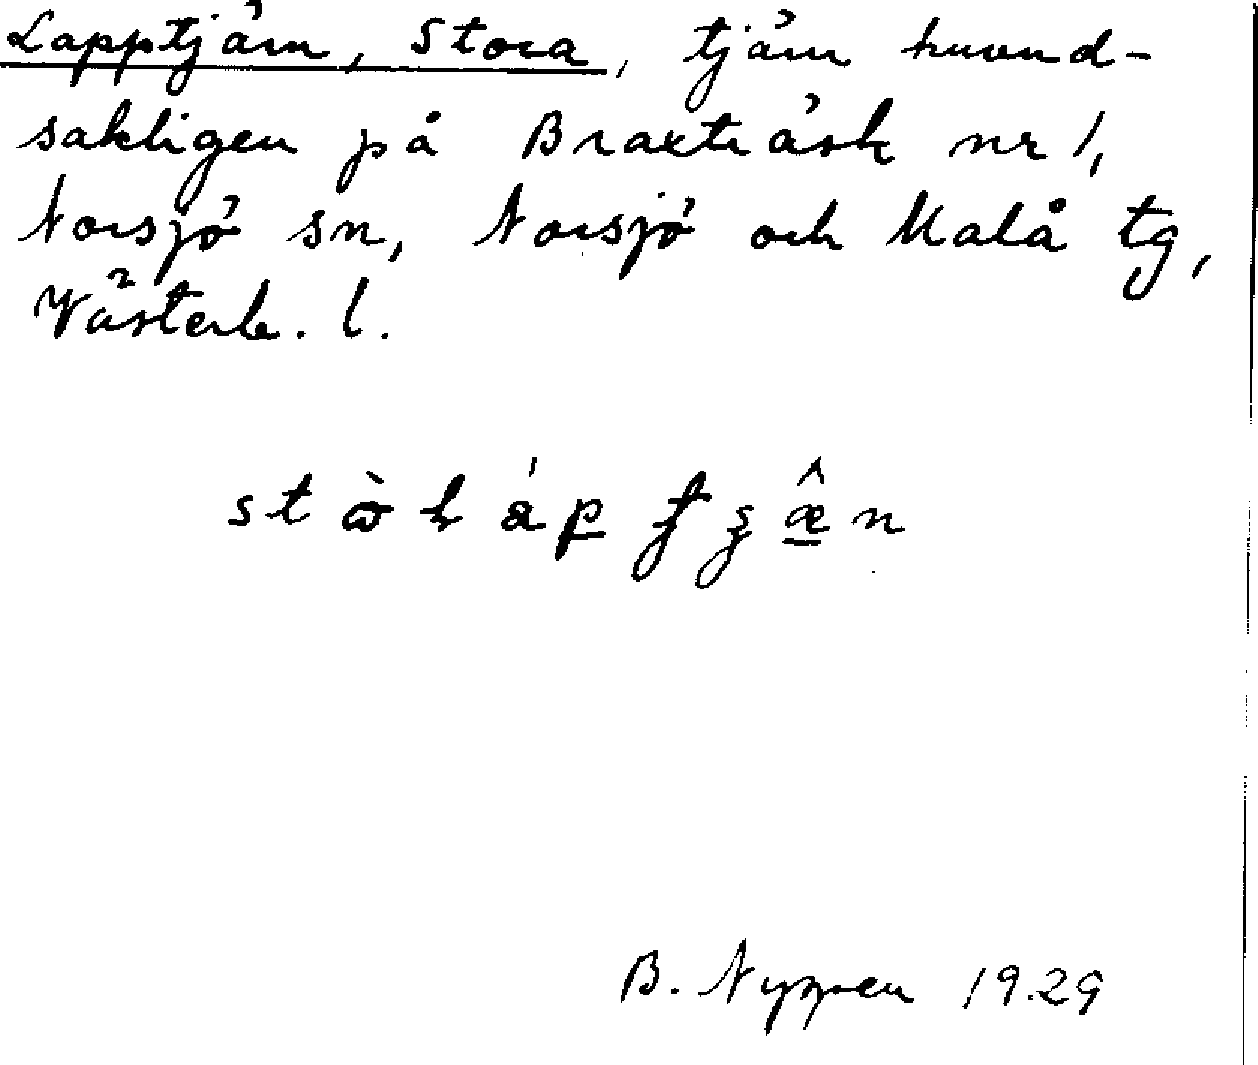 Lapptjärn, Stora, tjärn huvud-
sakligen på Braxträsk nr 1,
Norsjö sn, Norsjö och Malå tg,
Västerb. l.
B. Nyppen 1929